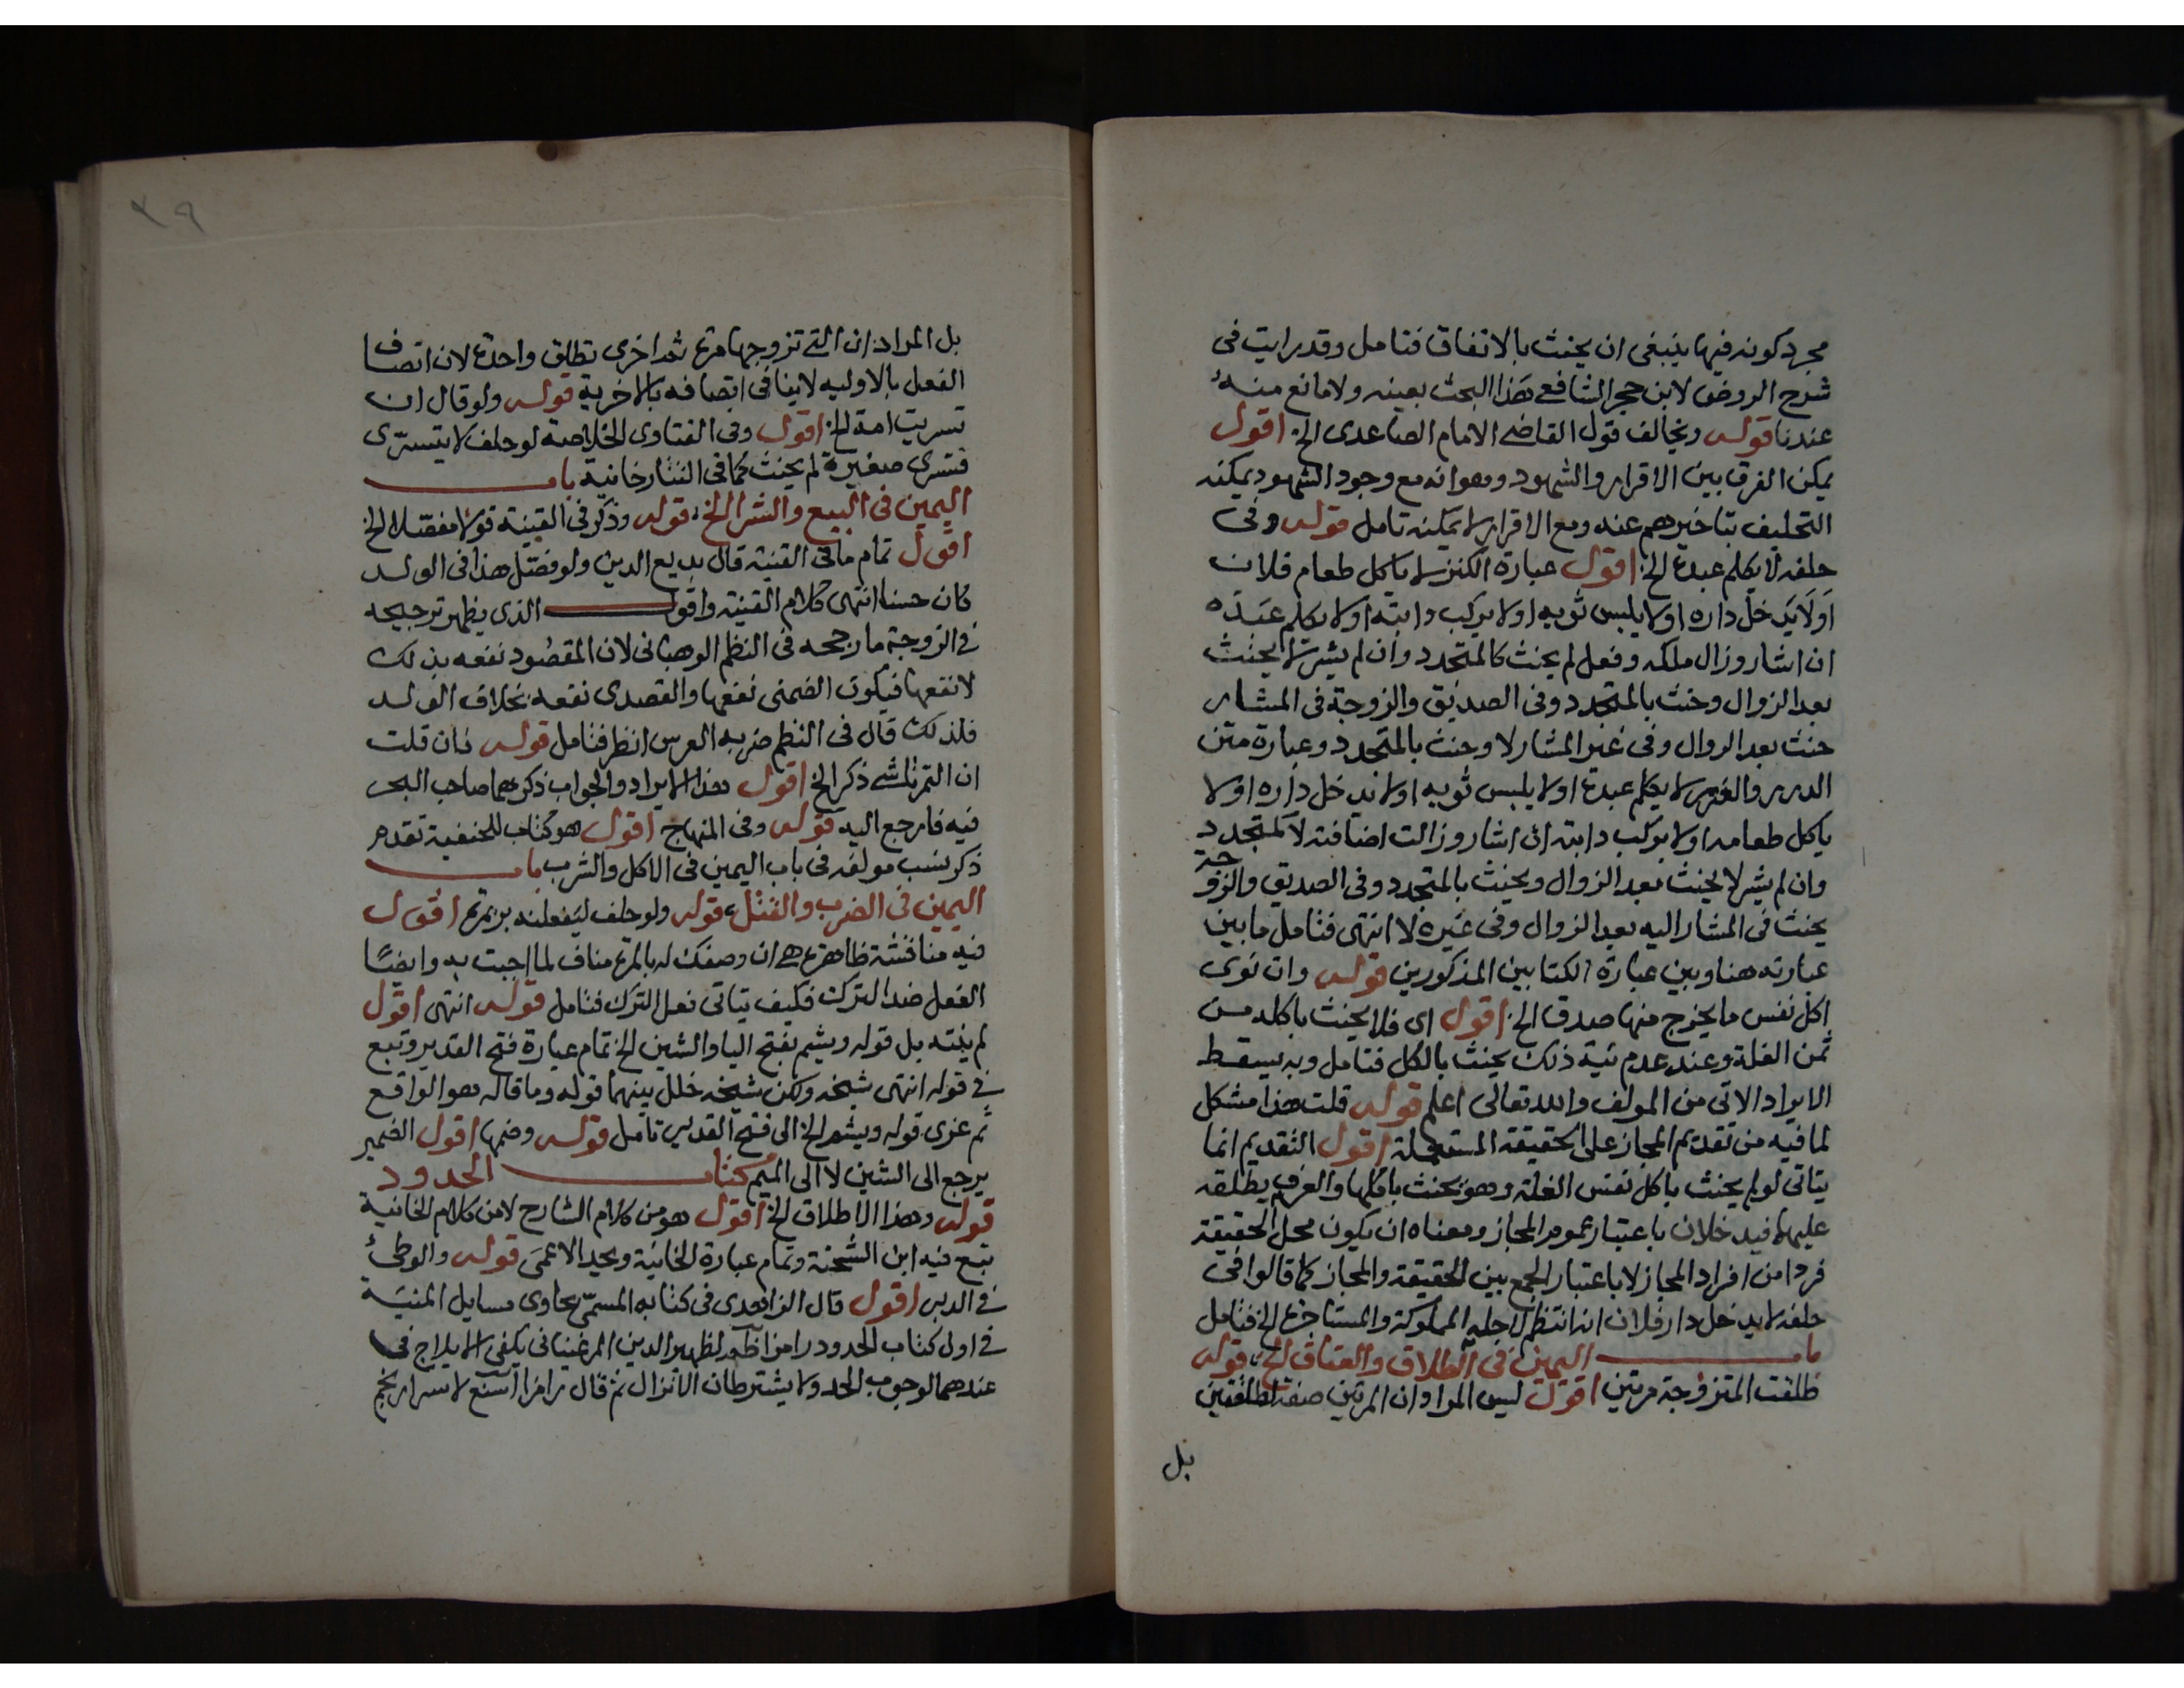 مجرد كونه فيها ينبغي ان يحنث بالاتفاق فتامل وقد رايت في
شرح الروض لابن حجر الشافعي هذا البحث بعينه ولا مانع منه
عندنا قوله ويخالف قول القاضي الامام الصاعدى الخ اقول
يمكن الفرق بين الاقرار والشهود وهو انه مع وجود الشهود يمكنه
التحليف بتاخيرهم عنه ومع الاقرار لا يمكنه تامل قوله وفي
حلفه لا يكلم عبده الخ اقول عبارة الكنز لا ياكل طعام فلان
او لا يدخل داره او لا يلبس ثوبه او لا يركب دابته او لا يكلم عبده
ان اشار وزال ملكه وفعل لم يحنث كالمتجدد وان لم يشر لا يحنث
بعد الزوال وحنث بالمتجدد وفي الصديق والزوجة في المشار
حنث بعد الزوال وفي غير المشار لا وحنث بالمتجدد وعبارة متن
الدرر والغرر لا يكلم عبده او لا يلبس ثوبه او لا يدخل داره او لا
ياكل طعامه او لا يركب دابته ان اشار وزالت اضافته لا كمتجدد
وان لم يشر لا يحنث بعد الزوال ويحنث بالمتجدد وفي الصديق والزوجة
يحنث في المشار اليه بعد الزوال وفي غيره لا انتهى فتامل ما بين
عبارته هنا وبين عبارة الكتابين المذكورين قوله وان نوى
اكل نفس ما يخرج منها صدق الخ اقول اى فلا يحنث باكله من
ثمن الغلة وعند عدم نية ذلك يحنث بالكل فتامل وبه يسقط
الايراد الاتى من المولف والله تعالى اعلم قوله قلت هذا مشكل
لما فيه من تقديم المجاز على الحقيقة المستعملة اقول التقديم انما
يتاتى لو لم يحنث باكل نفس الغلة وهو يحنث باكلها والعرف يطلقه
عليها فيدخلان باعتبار عموم المجاز ومعناه ان يكون محل الحقيقة
فردا من افراد المجاز لا باعتبار الجمع بين الحقيقة والمجاز كما قالوا في
حلفه لا يدخل دار فلان انه انتظم لاجله المملوكة والمستاجرة الخ فتامل
باب اليمين في الطلاق والعتاق الخ قوله
طلقت المتزوجة مرتين اقول ليس المراد ان المرتين صفة لطلقتين
بل
٣٩
بل المراد ان التي تزوجها مرة ثم اخرى تطلق واحدة لان اتصاف
الفعل بالاوليه لا ينافي اتصافه بالاخرية قوله ولو قال ان
تسريت امة الخ اقول وفي الفتاوى الخلاصة لو حلف لا يتسرى
فتسرى صغيرة لم يحنث كما في التتارخانية باب
اليمين في البيع والشرا الخ قوله وذكر في القنية قولا مفصلا الخ
اقول تمام ما في القنية قال بديع الدين ولو فصل هذا في الولد
كان حسنا انتهى كلام القنية واقول الذي يظهر ترجيحه
في الزوجة ما رجحه في النظم الوهباني لان المقصود نفعه بذلك
لا نفعها فيكون الضمني نفعها والقصدى نفعه بخلاف الولد
فلذلك قال في النظم ضربه العرس انظر فتامل قوله فان قلت
ان التمرتاشي ذكر الخ اقول هذا الايراد والجواب ذكرهما صاحب البحر
فيه فارجع اليه قوله وفي المنهاج اقول هو كتاب للحنفية تقدم
ذكر نسب مولفه في باب اليمين في الاكل والشرب باب
اليمين في الضرب والقتل قوله ولو حلف ليفعلنه بر بمرة اقول
فيه مناقشة ظاهرة هي ان وصفك له بالمرة مناف لما اجبت به وايضا
الفعل ضد الترك فكيف يتاتى فعل الترك فتامل قوله انتهى اقول
لم ينته بل قوله ويشم بفتح اليا والشين الخ تمام عبارة فتح القدير وتبع
في قوله انتهى شيخه ولكن شيخه خلل بينهما قوله وما قاله هو الواقع
ثم عزى قوله ويشم الخ الى فتح القدير تامل قوله وضمها اقول الضمير
يرجع الى الشين لا الى الميم كتاب الحدود
قوله وهذا الاطلاق الخ اقول هو من كلام الشارح لا من كلام الخانية
تبع فيه ابن الشحنة وتمام عبارة الخانية ويحد الاعمى قوله والوطئ
في الدبر اقول قال الزاهدى في كتابه المسمى بحاوى مسايل المنية
في اول كتاب الحدود رامزا ظم لظهير الدين المرغيناني يكفي الايلاج في
عندهما لوجوب الحد ولا يشترطان الانزال ثم قال رامزا اسنع لاسرار نجم